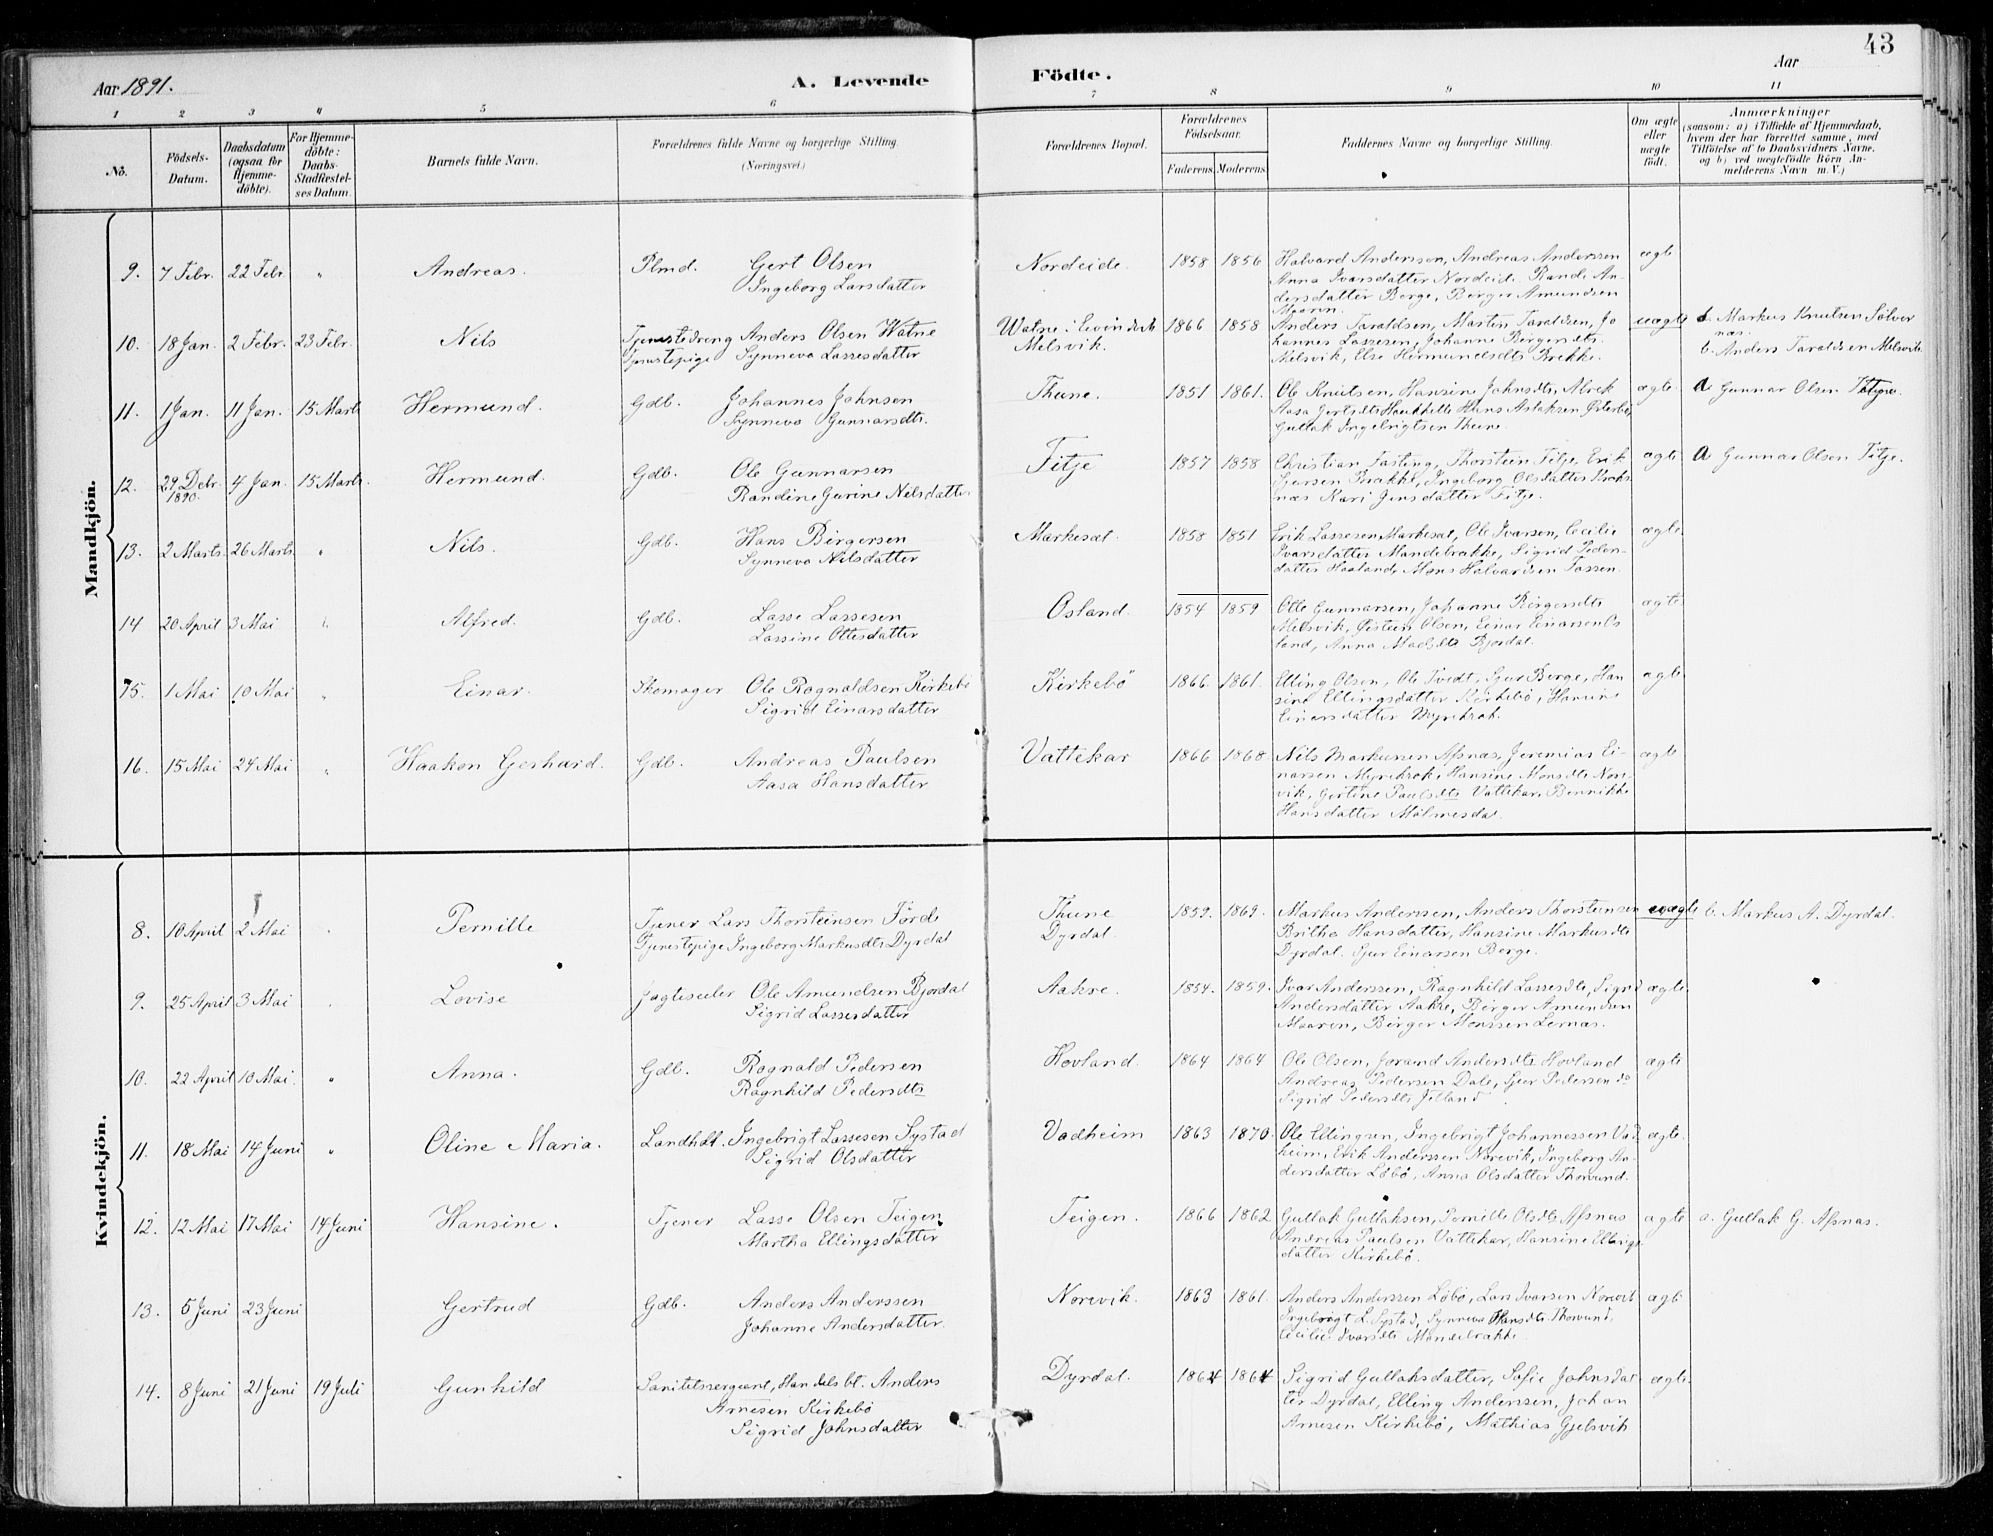 43
Aar 1891. A. Levende Födte. Aar
1 2 3 4 5 6 7 8 9 10 11
No.
Födsels-
Datum.
Daabsdatum
(ogsaa for
Hjemme-
döbte).
For Hjemme-
döbte:
Daabs-
Stadfæstel-
ses Datum.
Barnets fulde Navn.
Forældrenes fulde Navne og borgerlige Stilling.
(Næringsvei.)
Forældrenes Bopæl.
Forældrenes
Födselsaar.
Faderens. Moderens.
Faddernes Navne og borgerlige Stilling.
Om ægte
eller
uægte
født.
Anmærkninger
(saasom: a) i Tilfælde af Hjemmedaab,
hvem der har forrettet samme, med
Tilföielse af to Daabsvidners Navne,
og b) ved uægtefödte Börn An-
melderens Navn m. V.)
Mandkjön.
9. 7 Febr. 22 Febr. " Andreas. Plmd. Gert Olsen Nordeide. 1858 1856 Halvard Anderssen, Andreas Anderssen ægte
Ingeborg Larsdatter Anna Ivarsdatter Nordeid. Rande An-
dersdatter Berge, Berger Amundsen
Maaren.
10. 18 Jan. 2 Febr. 23 Febr. Nils Tjenestedreng Anders Olsen Watne Watne i Eivindvik 1866 1858 Anders Taraldsen, Marten Taraldsen, Jo uægte a. Markus Knutsen Sølver
Tjenestepige Synneva Lassesdatter Melsvik. hannes Lassesen, Johanne Børgersdtr. næs.
Melsvik, Else Hermundsdtr Brekke. b. Anders Taraldsen Melsvik.
11. 1 Jan. 11 Jan. 15 Marts Hermund. Gdb. Johannes Johnsen Thune. 1851 1861. Ole Knutsen, Hansine Johnsdtr, Alrek ægte. a Gunnar Olsen Fitje.
Synneva Gunnarsdtr. Aasa Gertsdtr Haukhelle Hans Aslaksen Østerbø,
Gullak Ingebrigtsen Thune.
12. 29 Decbr. 4 Jan. 15 Marts. Hermund. Gdb. Ole Gunnarsen Fitje 1857 1858 Christian Fasting, Thorstein Fitje, Erik ægte a Gunnar Olsen Fitje.
1890. Randine Gurine Nilsdatter Sjursen Brekke, Ingeborg Olsdatter Kroks
næs Kari Jensdatter Fitje.
13. 2 Marts. 26 Marts. " Nils. Gdb. Hans Børgersen Markesæt. 1858 1851 Erik Lassesen Markesæt, Ole Ivarsen, Cecilie ægte.
Synneva Nilsdatter Ivarsdatter Mandebrække, Sigrid Peder-
datter Haaland, Mons Halvardsen Tassen.
14 20 April 3 Mai " Alfred. Gdb. Lasse Lassesen Osland. 1854 1859 Otte Gunnarsen, Johanne Børgersdtr ægte
Lassine Ottesdatter Melsvik, Østein Olsen, Einar Einarsen Os
land, Anna Madsdtr Bjordal.
15. 1 Mai 10 Mai " Einar. Skomager Ole Ragnaldsen Kirkebø Kirkebö 1866. 1861. Elling Olsen, Ole Tvedt, Sjur Berge, Han ægte
Sigrid Einarsdatter sine Ellingsdatter Kirkebø, Hansine
Einarsdatter Myrekrok.
16. 15 Mai 24 Mai " Haakon Gerhard. Gdb. Andreas Paulsen Vattekar 1866 1868 Nils Markusen Afsnæs, Jeremias Ei- ægte
Aasa Hansdatter narsen Myrekrok, Hansine Monsdtr Nore-
vik, Gertine Paulsdtr Vattekar, Bennikke
Hansdatter Mölmesdal.
Kvindekjön.
8. 10 April 2 Mai " Pernille Tjener Lars Thorsteinsen Förde Thune 1859. 1869. Markus Anderssen, Anders Thorsteinsen uægte b. Markus A. Dyrdal.
Tjenestepige Ingeborg Markusdtr Dyrdal Dyrdal. Britha Hansdatter, Hansine Markusdtr
Dyrdal. Sjur Einarsen Berge.
9. 25 April 3 Mai " Lovise Jagteseiler Ole Amundsen Bjordal Aakre. 1854. 1859. Ivar Anderssen, Ragnhild Lassesdtr, Sigrid ægte.
Sigrid Lassesdatter Andersdatter Aakre, Børger Amundsen
Maaren, Børger Monssen Lernæs.
10. 22 April 10 Mai. " Anna. Gdb. Ragnald Pedersen Hovland. 1864 1864 Ole Olsen, Jorand Andersdtr Hovland ægte
Ragnhild Pedersdtr Andreas Pedersen Dale, Sjur Pedersen do
Sigrid Pedersdtr Jetland.
11. 18 Mai 14 Juni " Oline Maria. Landhdl. Ingebrigt Lassesen Systad Vadheim 1863 1870. Ole Ellingsen, Ingebrigt Johannessen Vad ægte.
Sigrid Olsdatter heim, Erik Anderssen Norevik, Ingeborg An-
dersdatter Løbø, Anna Olsdatter Thorsund.
12. 12 Mai 17 Mai 14 Juni Hansine. Tjener Lasse Olsen Teigen Teigen. 1866 1862 Gullak Gullaksen, Pernille Olsdtr Afsnæs ægte a. Gullak G. Afsnæs.
Martha Ellingsdatter Andreas Paulsen Vattekar, Hansine Ellings
datter Kirkebö.
13. 5 Juni 23 Juni Gertrud Gdb. Anders Anderssen Norevik. 1863 1861. Anders Anderssen Løbø, Lars Ivarsen Norevik ægte
Johanne Andersdatter. Ingebrigt L. Systad, Synneva Hansdtr. Thorsund,
Cecilie Ivarsdtr Mandebrække.
14. 8 Juni 21 Juni 19 Juli Gunhild Sanitetssergeant, Handelsbt. Anders Dyrdal. 1864 1864 Sigrid Gullaksdatter, Sofie Johnsdat ægte
Arnesen Kirkebö ter Dyrdal, Elling Anderssen, Johan
Sigrid Johnsdatter Arnesen Kirkebö, Mathias Gjelsvik